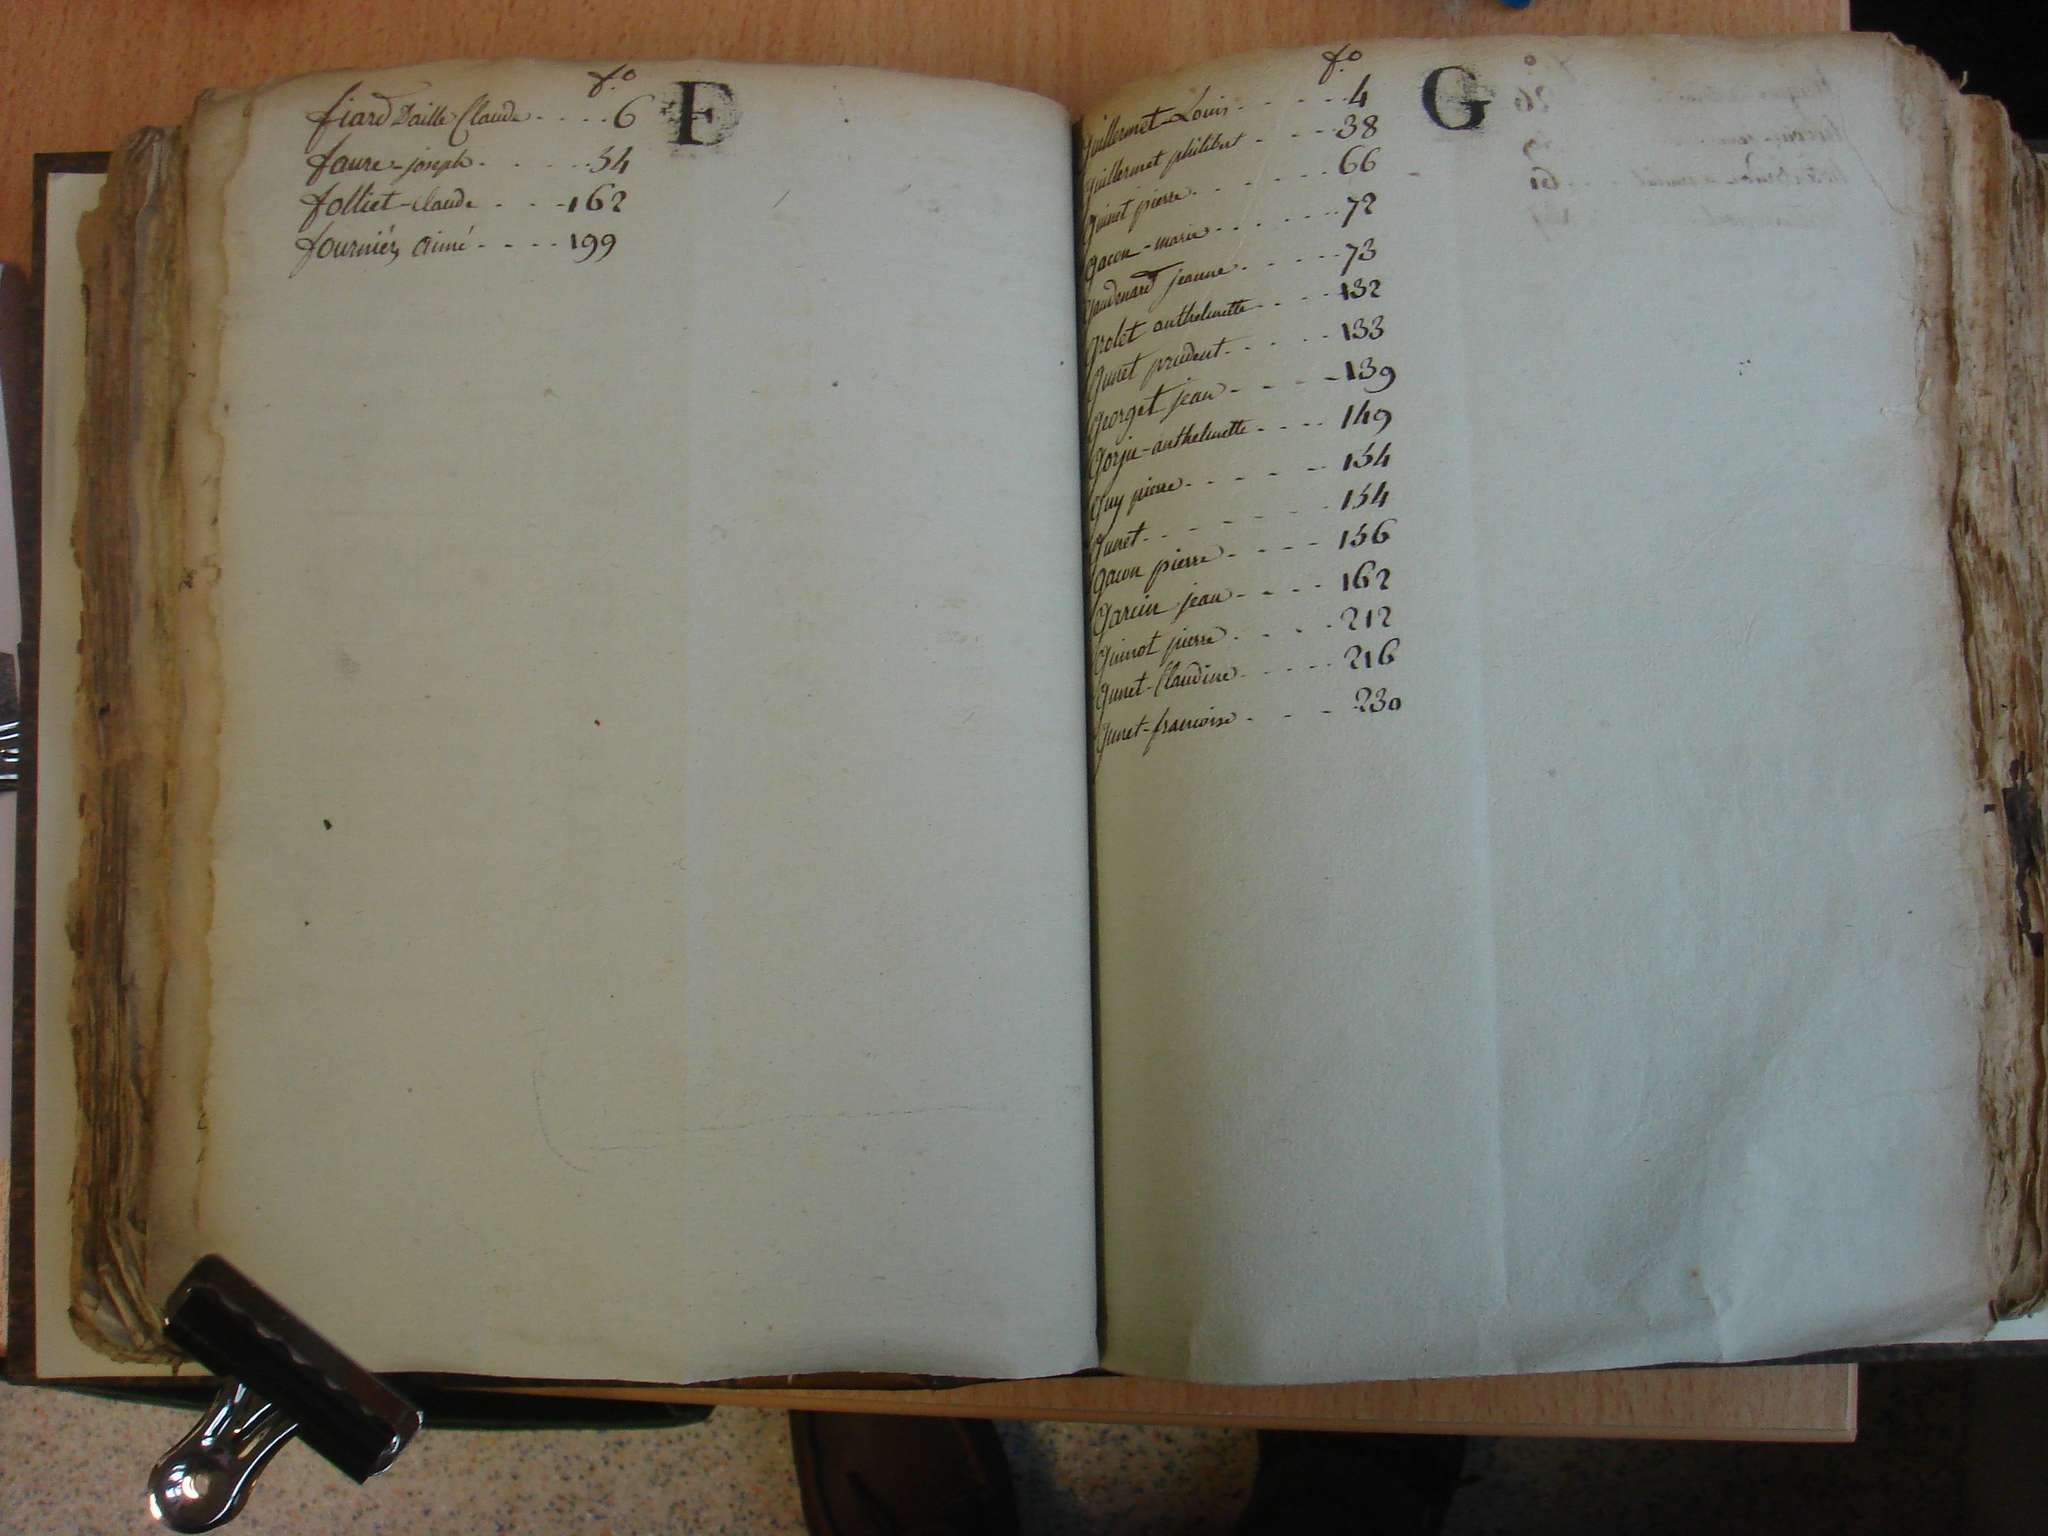 fo F
fiard Daille Claude - - - - 6
faure-joseph - - - - - 54
folliet-Claude - - - 162
fournier aimé - - - - 199
fo G
guillermet-Louis - - - - - 4
guillermet philibert - - - - 38
guinet pierre - - - - - - 66
gacon-marie - - - - - - 72
gaudenard jeanne - - - - - 73
grolet anthelmette - - - - 132
gunet prudent - - - - - 133
georget jean - - - - 139
gorju-anthelmette - - - - 149
guy pierre - - - - - 154
gunet - - - - - - 154
gacon pierre - - - - 156
garcin jean - - - - 162
guinot pierre - - - - 212
gunet-Claudine - - - - - 216
gunet-francoise - - - 230